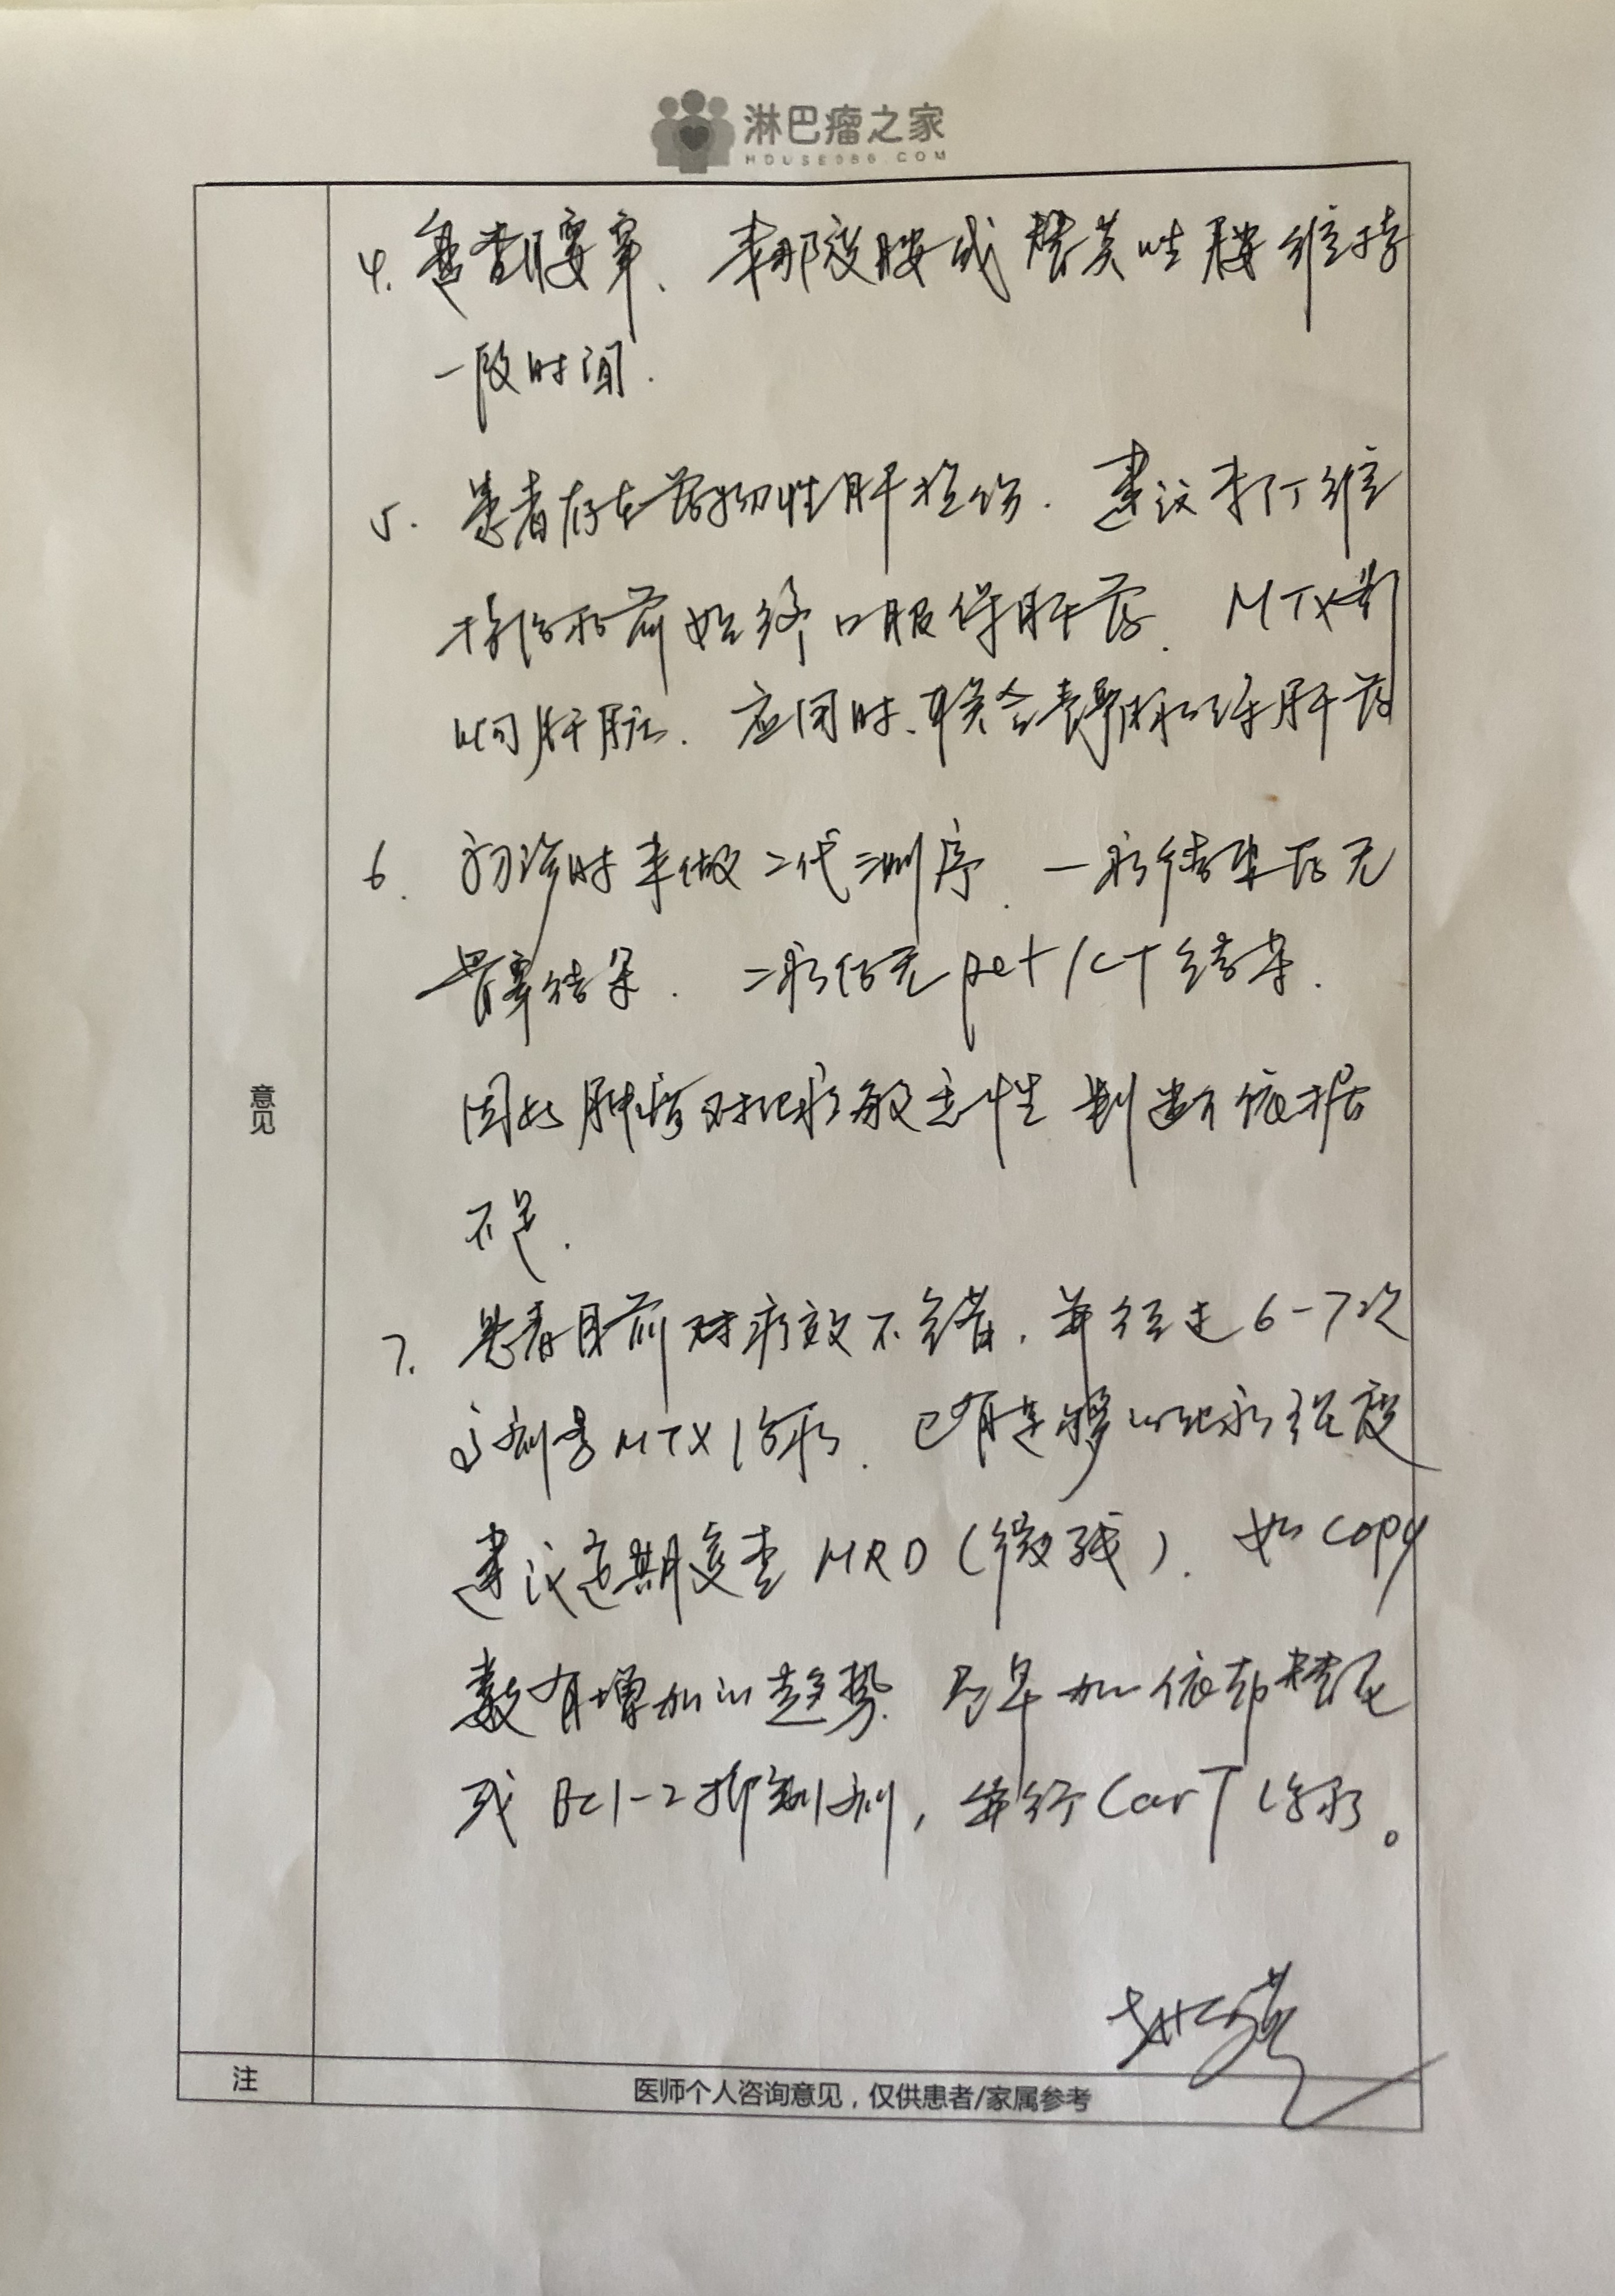 淋巴瘤之家
HOUSE086.COM
4. 复查腰穿、来那度胺或替莫唑胺维持
一段时间.
5. 患者存在药物性肝损伤. 建议来行维
持治疗前始终口服保肝药. MTX影
响肝脏. 应用时、联合静脉保肝药
6. 初诊时未做二代测序. 一疗结束后无
骨穿结果. 二疗后无pet/CT结果.
因此肿瘤对化疗敏感性判断依据
不足.
7. 患者目前对疗效不错, 并经过6-7次
大剂量MTX治疗. 已有足够的化疗强度
建议定期复查MRD(微残). 如copy
数有增加的趋势. 尽早加依布替尼
或Bcl-2抑制剂, 并行CarT治疗。
意见
注
医师个人咨询意见，仅供患者/家属参考